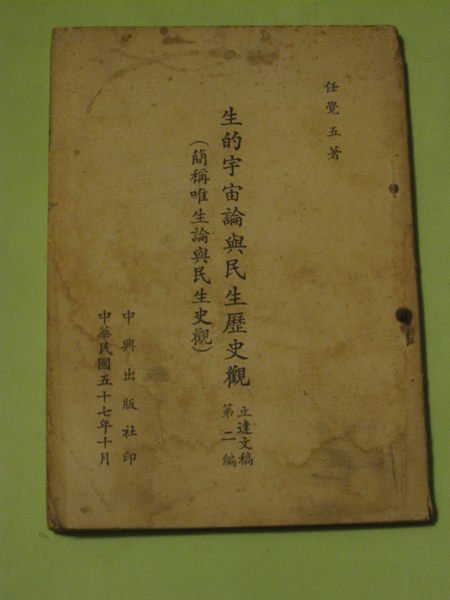 任覺五著
生的宇宙論與民生歷史觀
立達文稿
第二編
(簡稱唯生論與民生史觀)
中興出版社印
中華民國五十七年十月